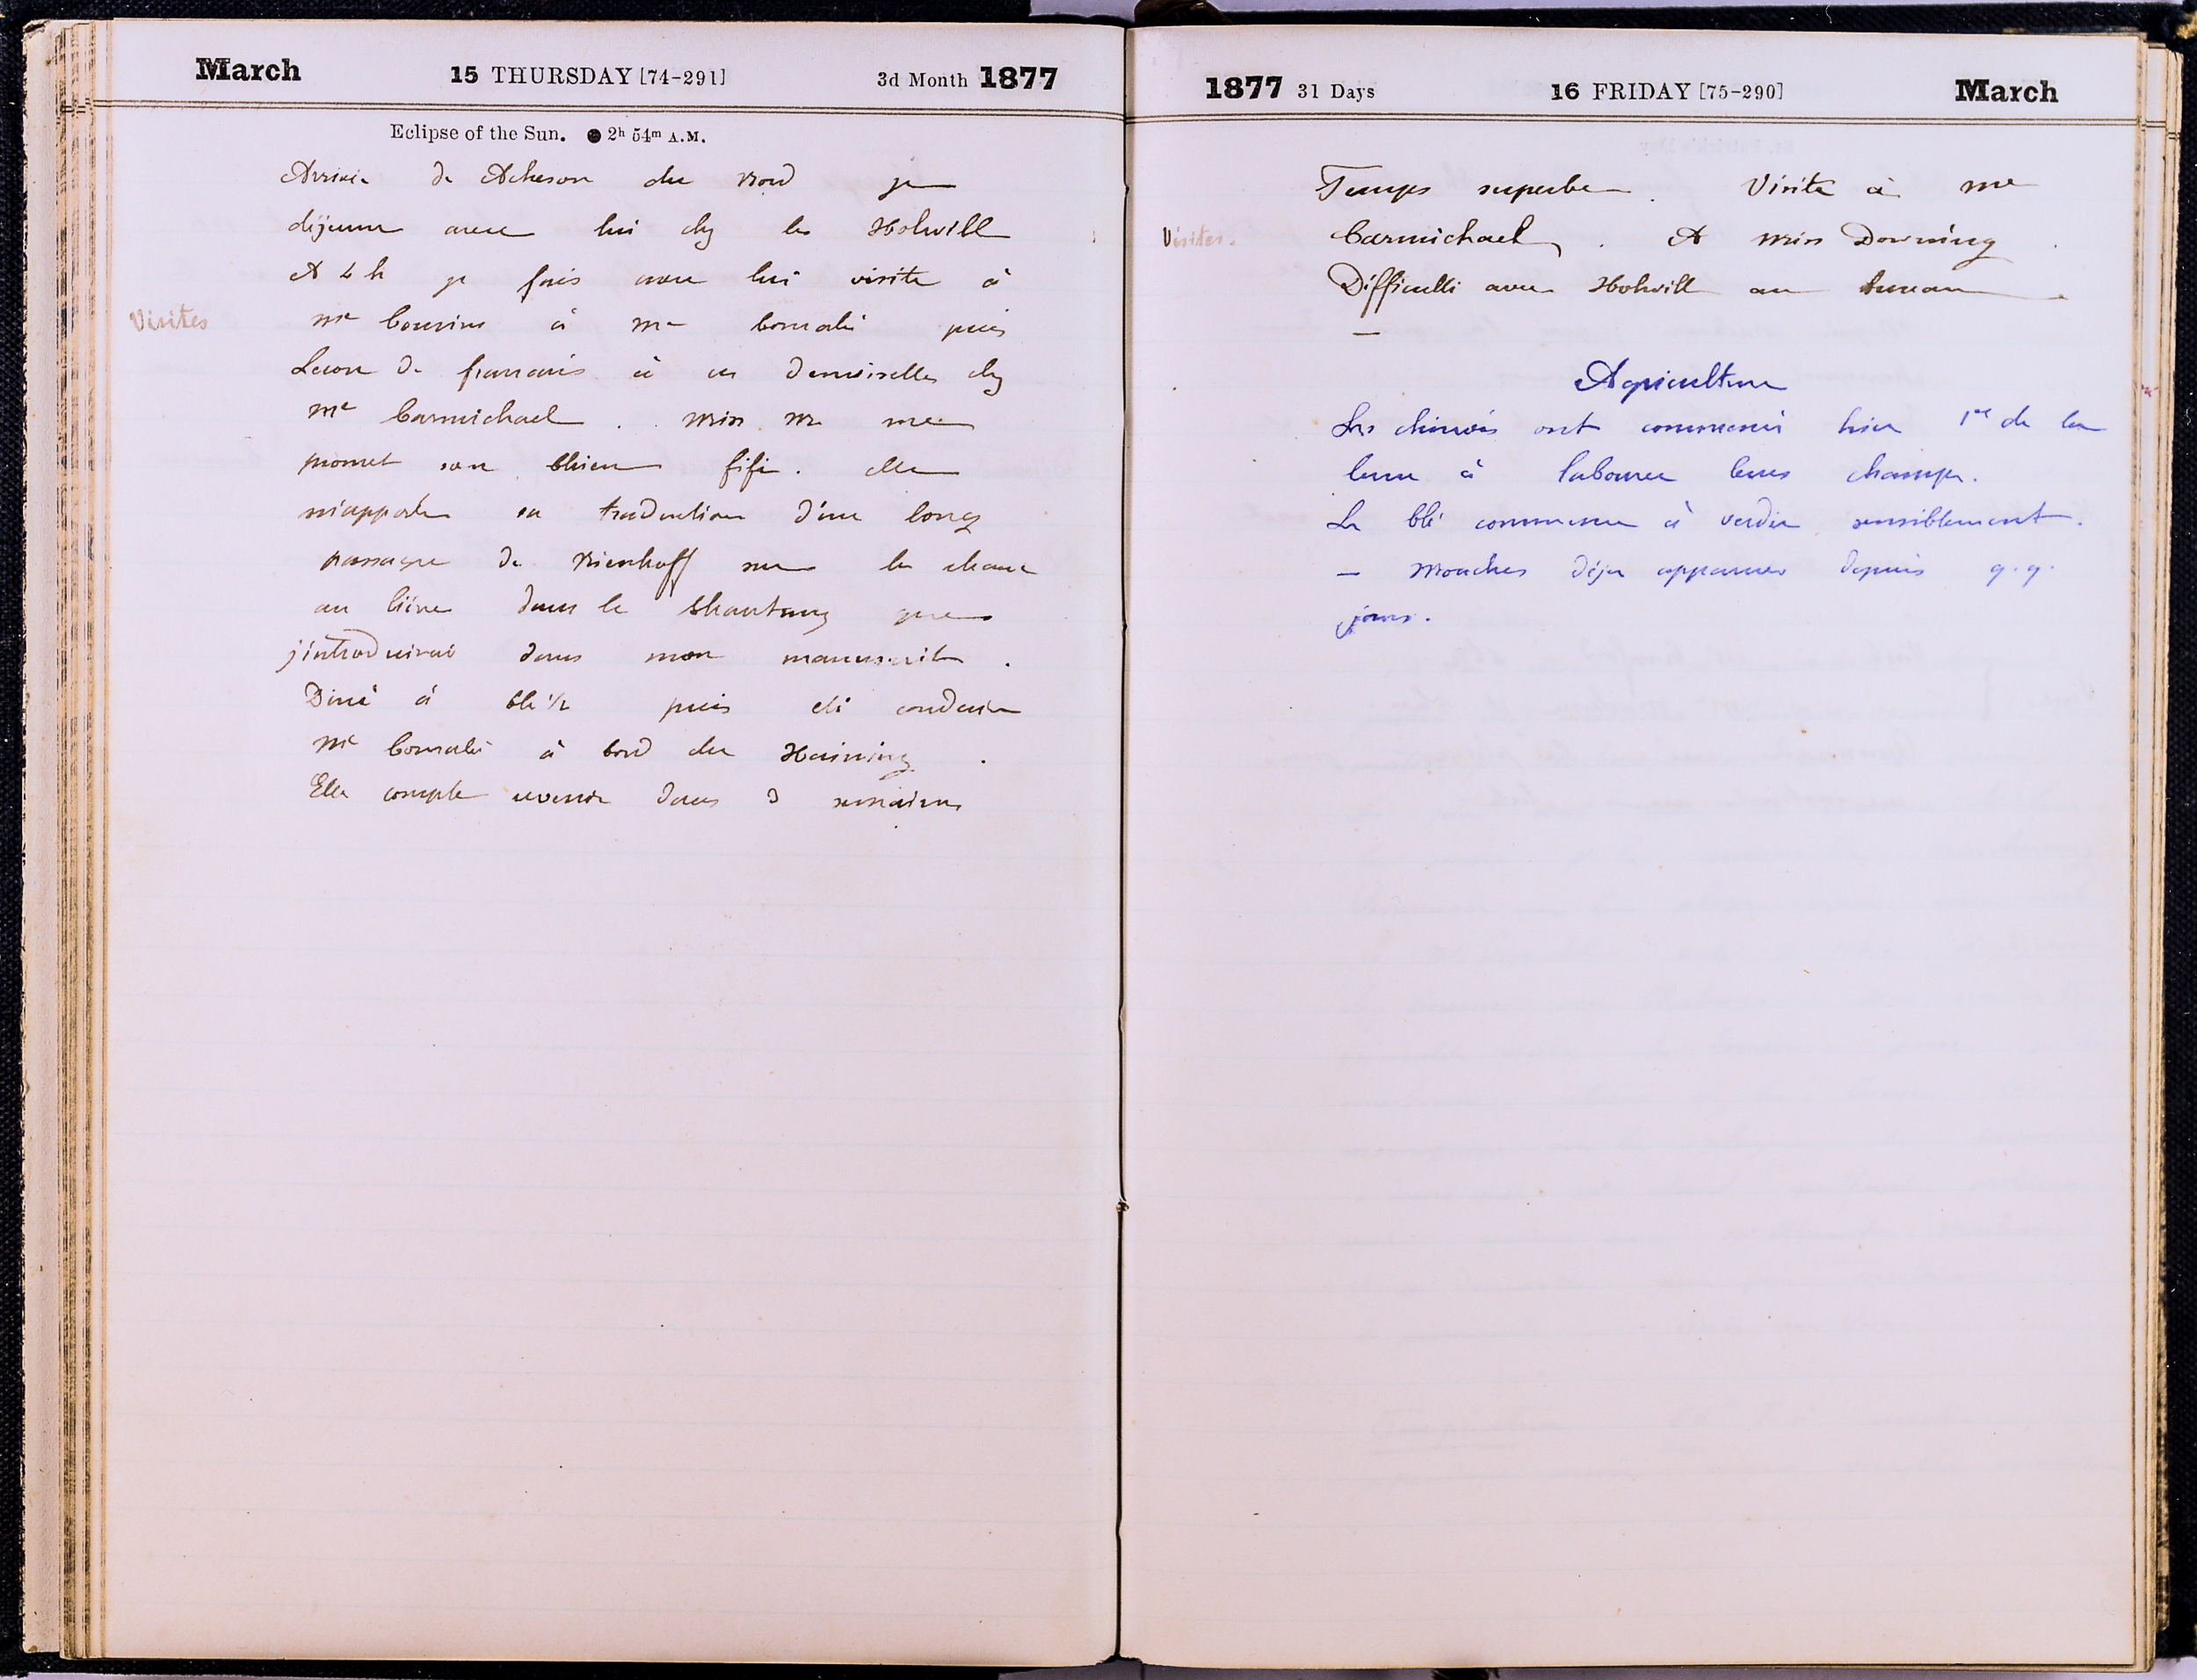 March 15 THURSDAY [74-291] 3d Month 1877
Eclipse of the Sun. ● 2h 54m A.M.
Arrivée de Acheson du Nord je
déjeune avec lui chez les Holwill
A 4 h je fais avec lui visite à
Visites
Me Cousins à Me puis
Leçon de français à ces demoiselles chez
Me Carmichael. Miss M me
promet son chien fifi. elle
m'apporte sa traduction d'un long
passage de Nienhoff sur la chasse
au lièvre dans le Shantung que
j'introduirai dans mon manuscrit.
Diné à 6h 1/2 puis été conduire
Me à bord du Haining.
Elle compte revenir dans 3 semaines
1877 31 Days 16 FRIDAY [75-290] March
Temps superbe. Visite à Me
Visites.
Carmichael. A Miss Downing.
Difficulté avec Holwill au bureau.
—
Agriculture
Les chinois ont commencé hier 1er de la
lune à labourer leurs champs.
Le blé commence à verdir sensiblement.
— Mouches déjà apparues depuis q.q.
jours.